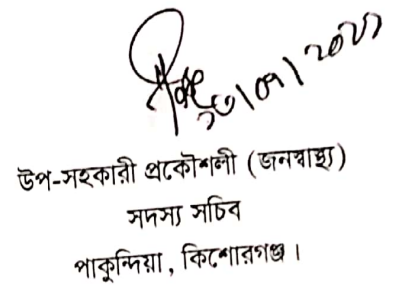 উপ-সহকারী প্রকৌশলী (জনস্বাস্থ্য)
সদস্য সচিব
পাকুন্দিয়া, কিশোরগঞ্জ।